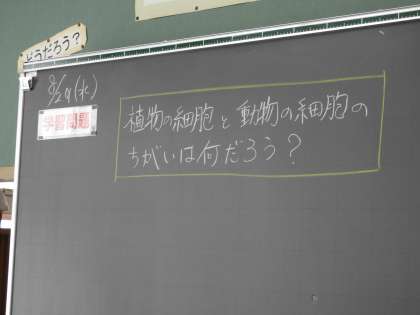 どうだろう?
8/29(水)
学習問題
植物の細胞と動物の細胞の
ちがいは何だろう?